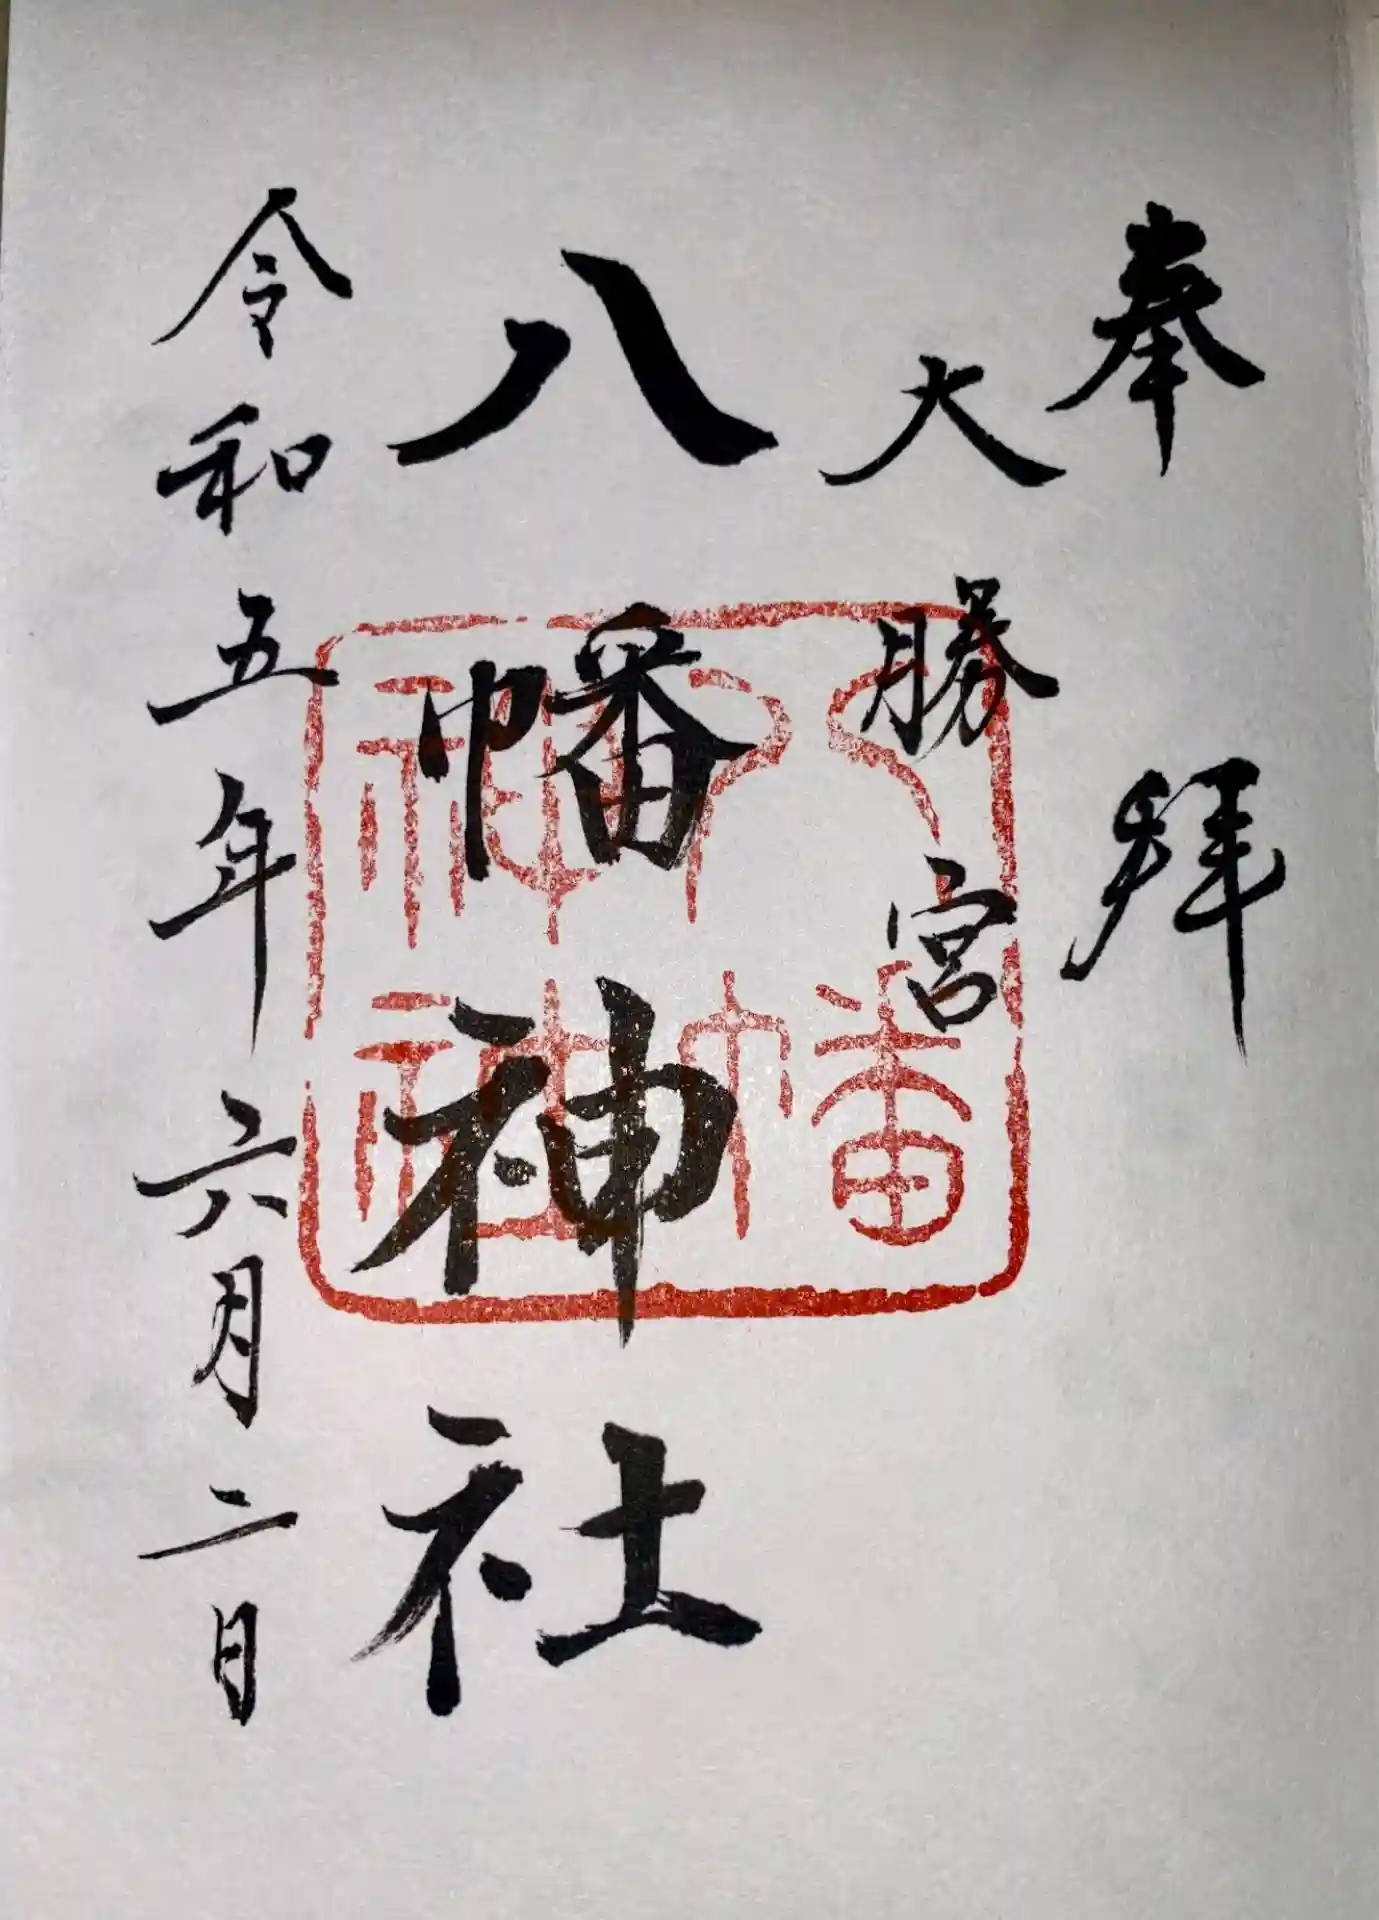 奉拜
大勝宮
八幡神社
令和五年六月二日
八幡神社